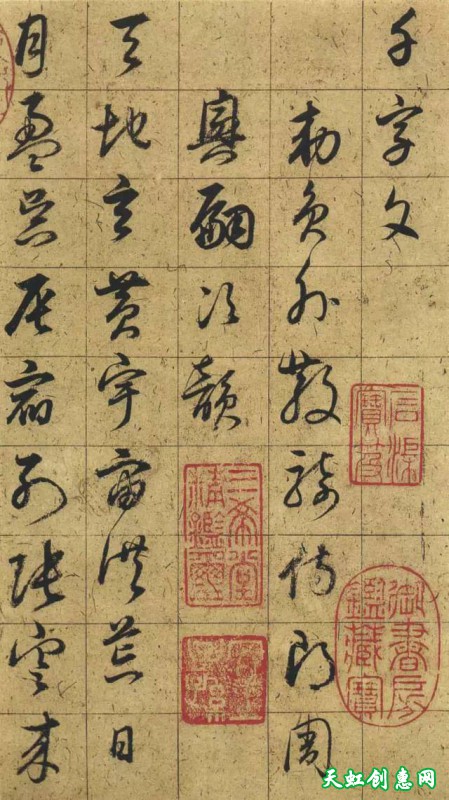 千字文
勅員外散騎侍郎周
興嗣次韻
天地玄黄宇宙洪荒日
月盈昃辰宿列張寒来
石渠寶笈
御書房鑑藏寶
三希堂精鑑璽
天虹创惠网